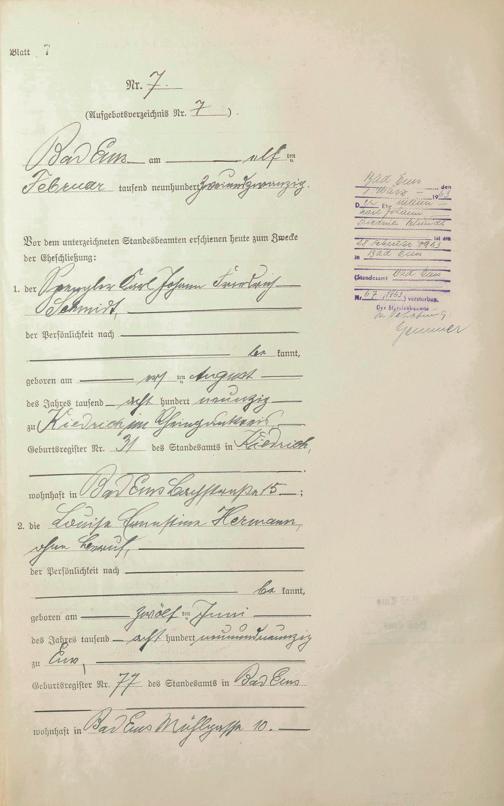 Blatt 7
Nr. 7
(Aufgebotsverzeichnis Nr. 7).
Bad Ems am elf ten
Februar tausend neunhundert zweiundzwanzig.
Vor dem unterzeichneten Standesbeamten erschienen heute zum Zwecke
der Eheschließung:
1. der Spengler Carl Johann Friedrich
Schmidt,
der Persönlichkeit nach
be kannt,
geboren am ersten August
des Jahres tausend acht hundert neunzig
zu Kiedrich im Rheingaukreis
Geburtsregister Nr. 31 des Standesamts in Kiedrich,
wohnhaft in Bad Ems 15;
2. die Louise Ernestine Hermann,
ohne Beruf,
der Persönlichkeit nach
be kannt,
geboren am zwölf ten Juni
des Jahres tausend acht hundert neunundneunzig
zu Ems,
Geburtsregister Nr. 77 des Standesamts in Bad Ems
wohnhaft in Bad Ems Mühlgasse 10.
Bad Ems, den
1. März 1963
D Ehe
Carl Johann
Friedrich Schmidt
ist am
28. Februar 1963
in Bad Ems
(Standesamt Bad Ems
Nr. 67/1963) verstorben.
Der Standesbeamte